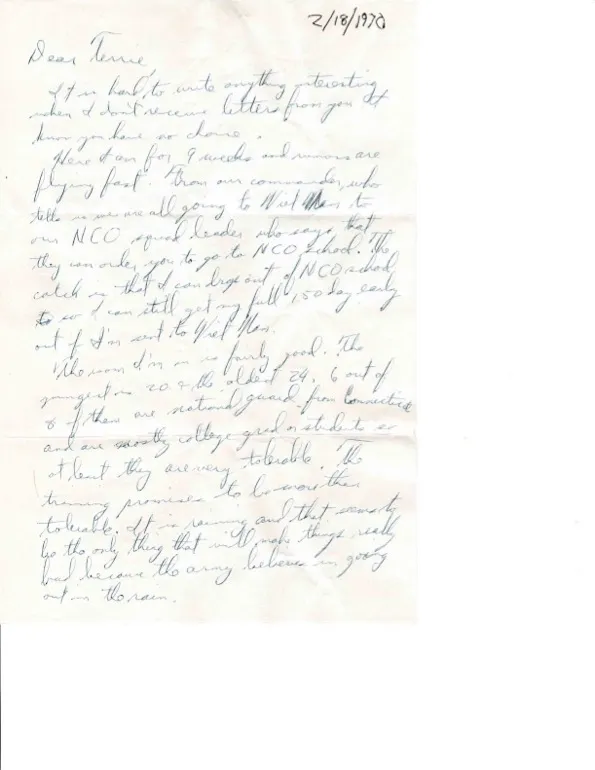 2/18/1970
Dear Terrie,
It is hard to write anything interesting
when I don't receive letters from you. I
know you have no choice.
Here I am for 9 weeks and rumors are
flying fast. From our commander, who
tells us we are all going to Viet Nam to
our NCO squad leader who says that
they can order you to go to NCO school. The
catch is that I can drop out of NCO school
so I can still get my full 150 day early
out if I'm sent to Viet Nam.
The room I'm in is fairly good. The
youngest is 20 & the oldest 24. 6 out of
8 of them are national guard from Connecticut
and are mostly college grad or students so
at least they are very tolerable. The
training promises to be more then
tolerable. It is raining and that seems to
be the only thing that will make things really
bad because the army believes in going
out in the rain.